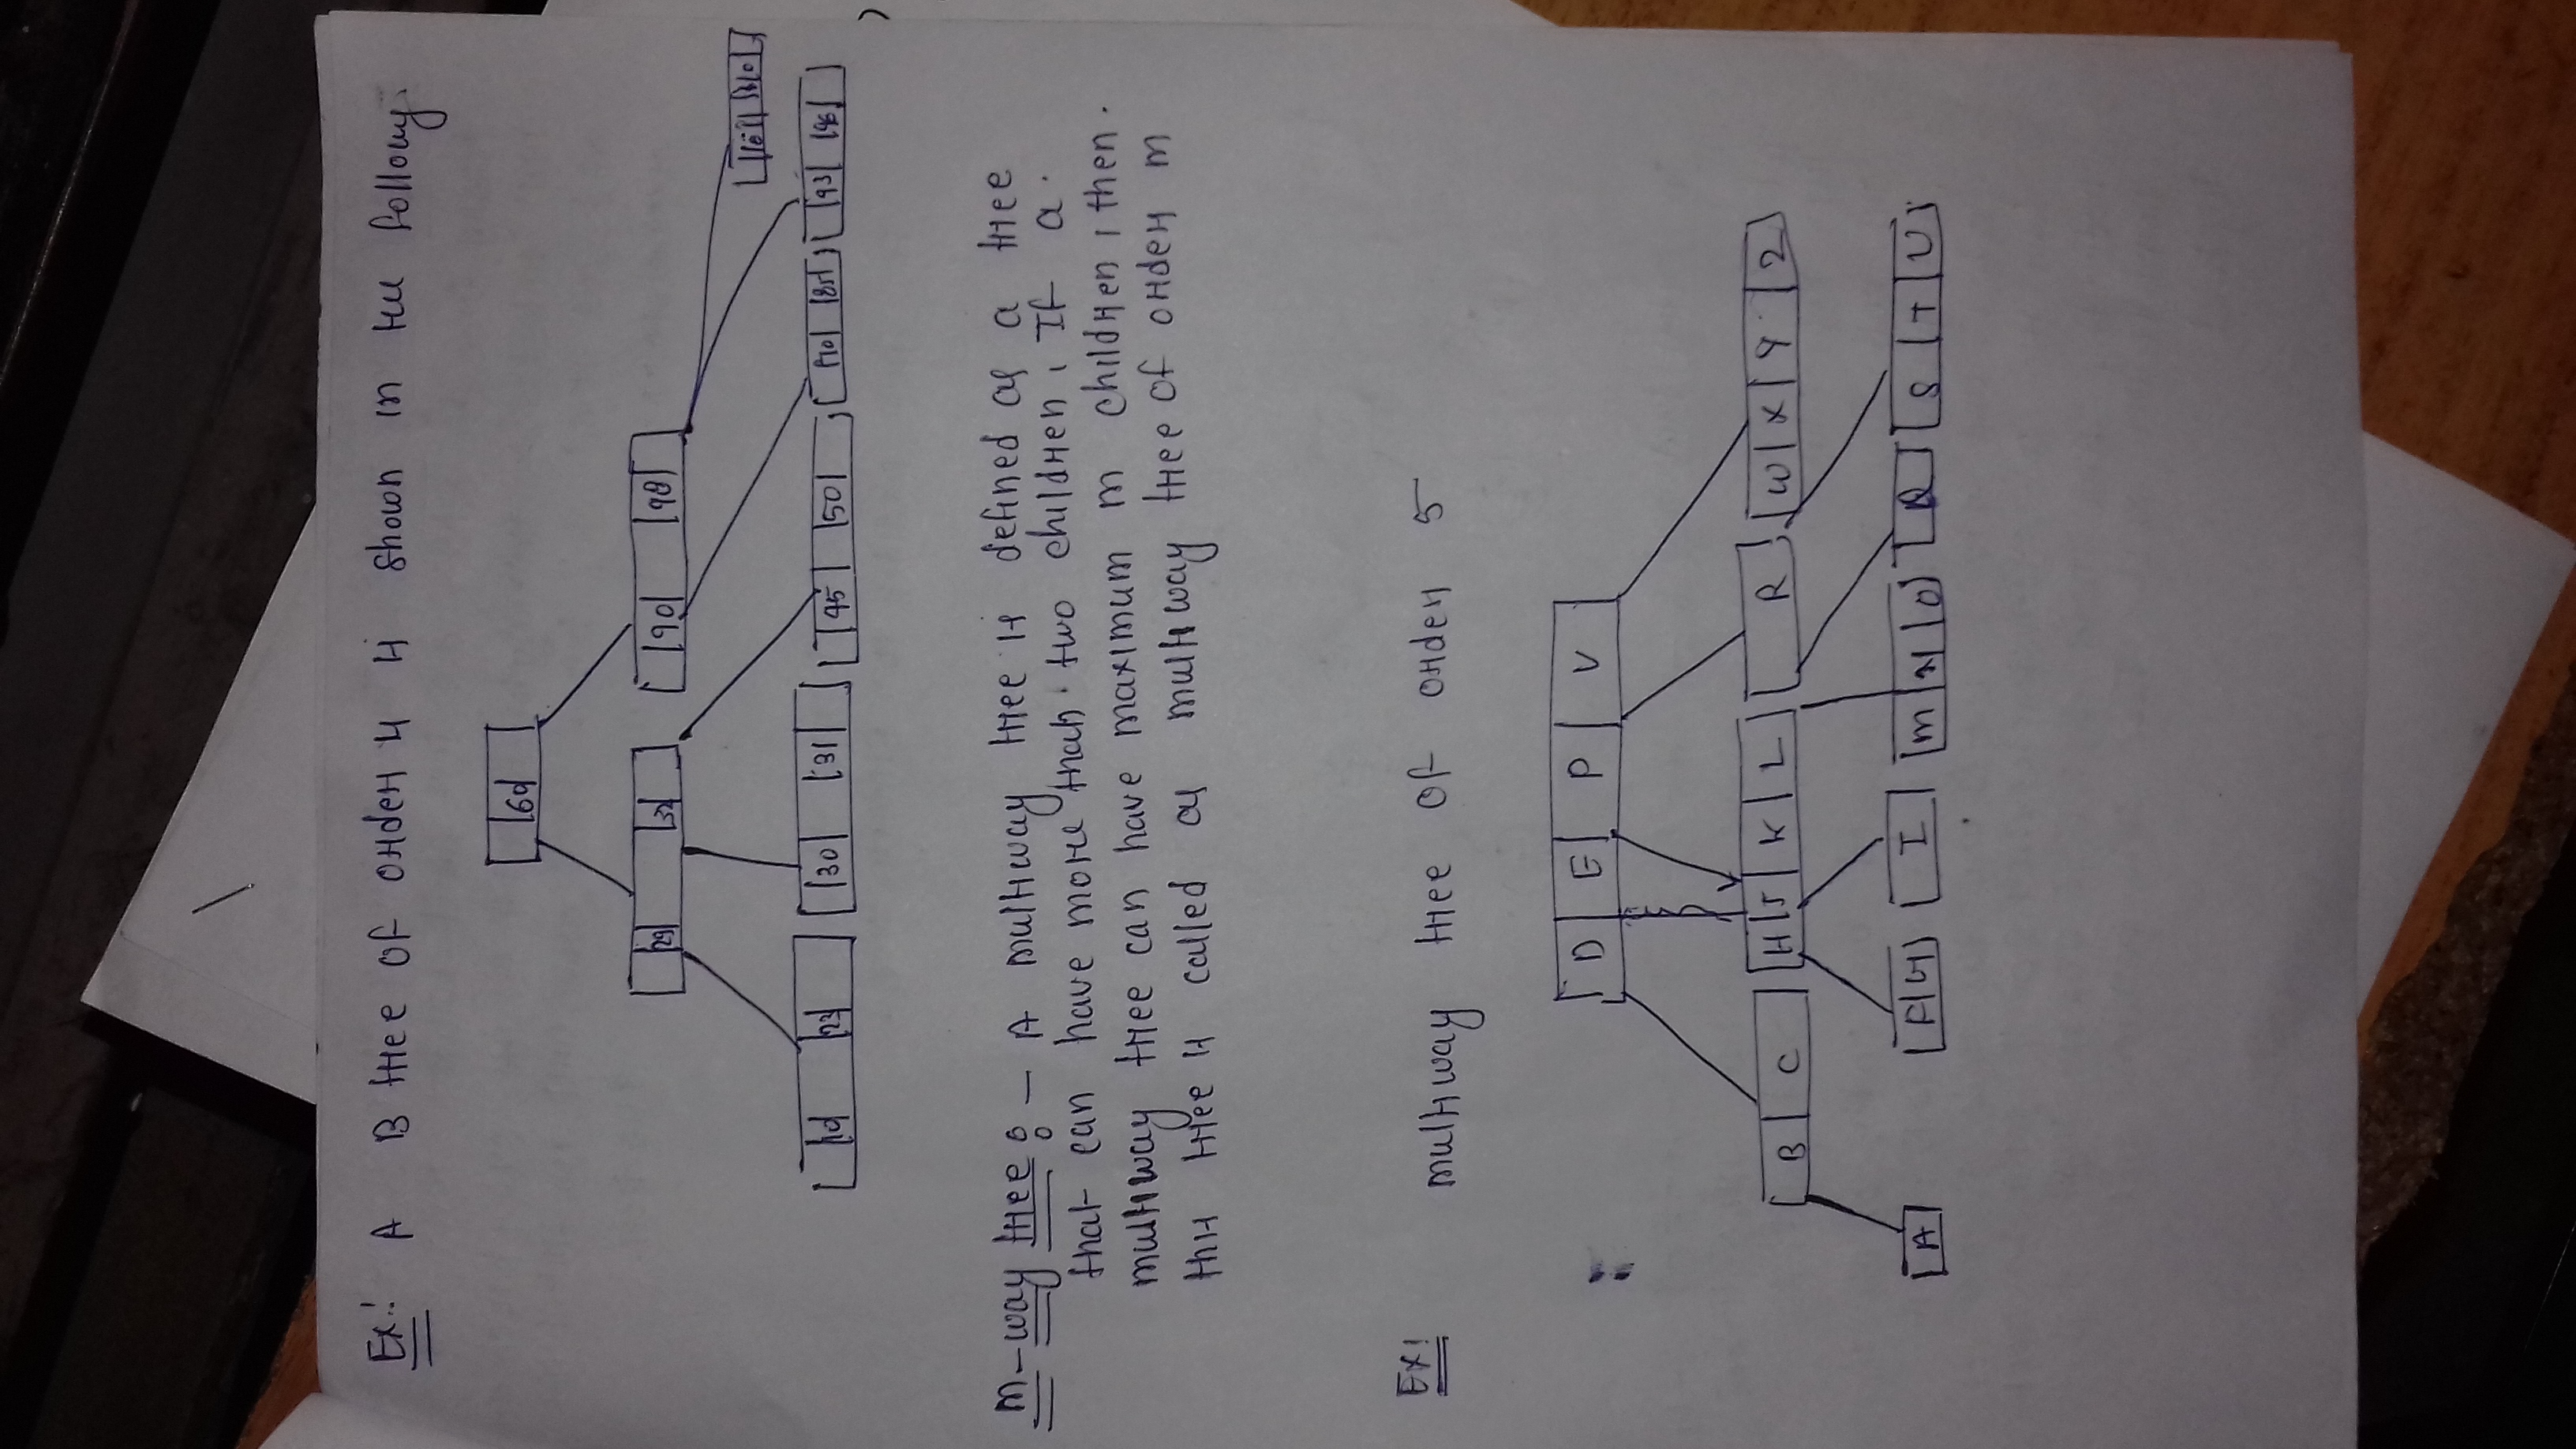 Ex:' A B tree of order 4 is shown in the following.
69
29 32 90 98
19 27 30 31 45 50 70 85 93 96
m-way tree :- A multiway tree is defined as a tree
that can have more than two children, If a.
multiway tree can have maximum m children, then.
this tree is called as multiway tree of order m
Ex! multiway tree of order 5
D E P V
B C H J K L R W X Y Z
A F G I m N O Q S T U